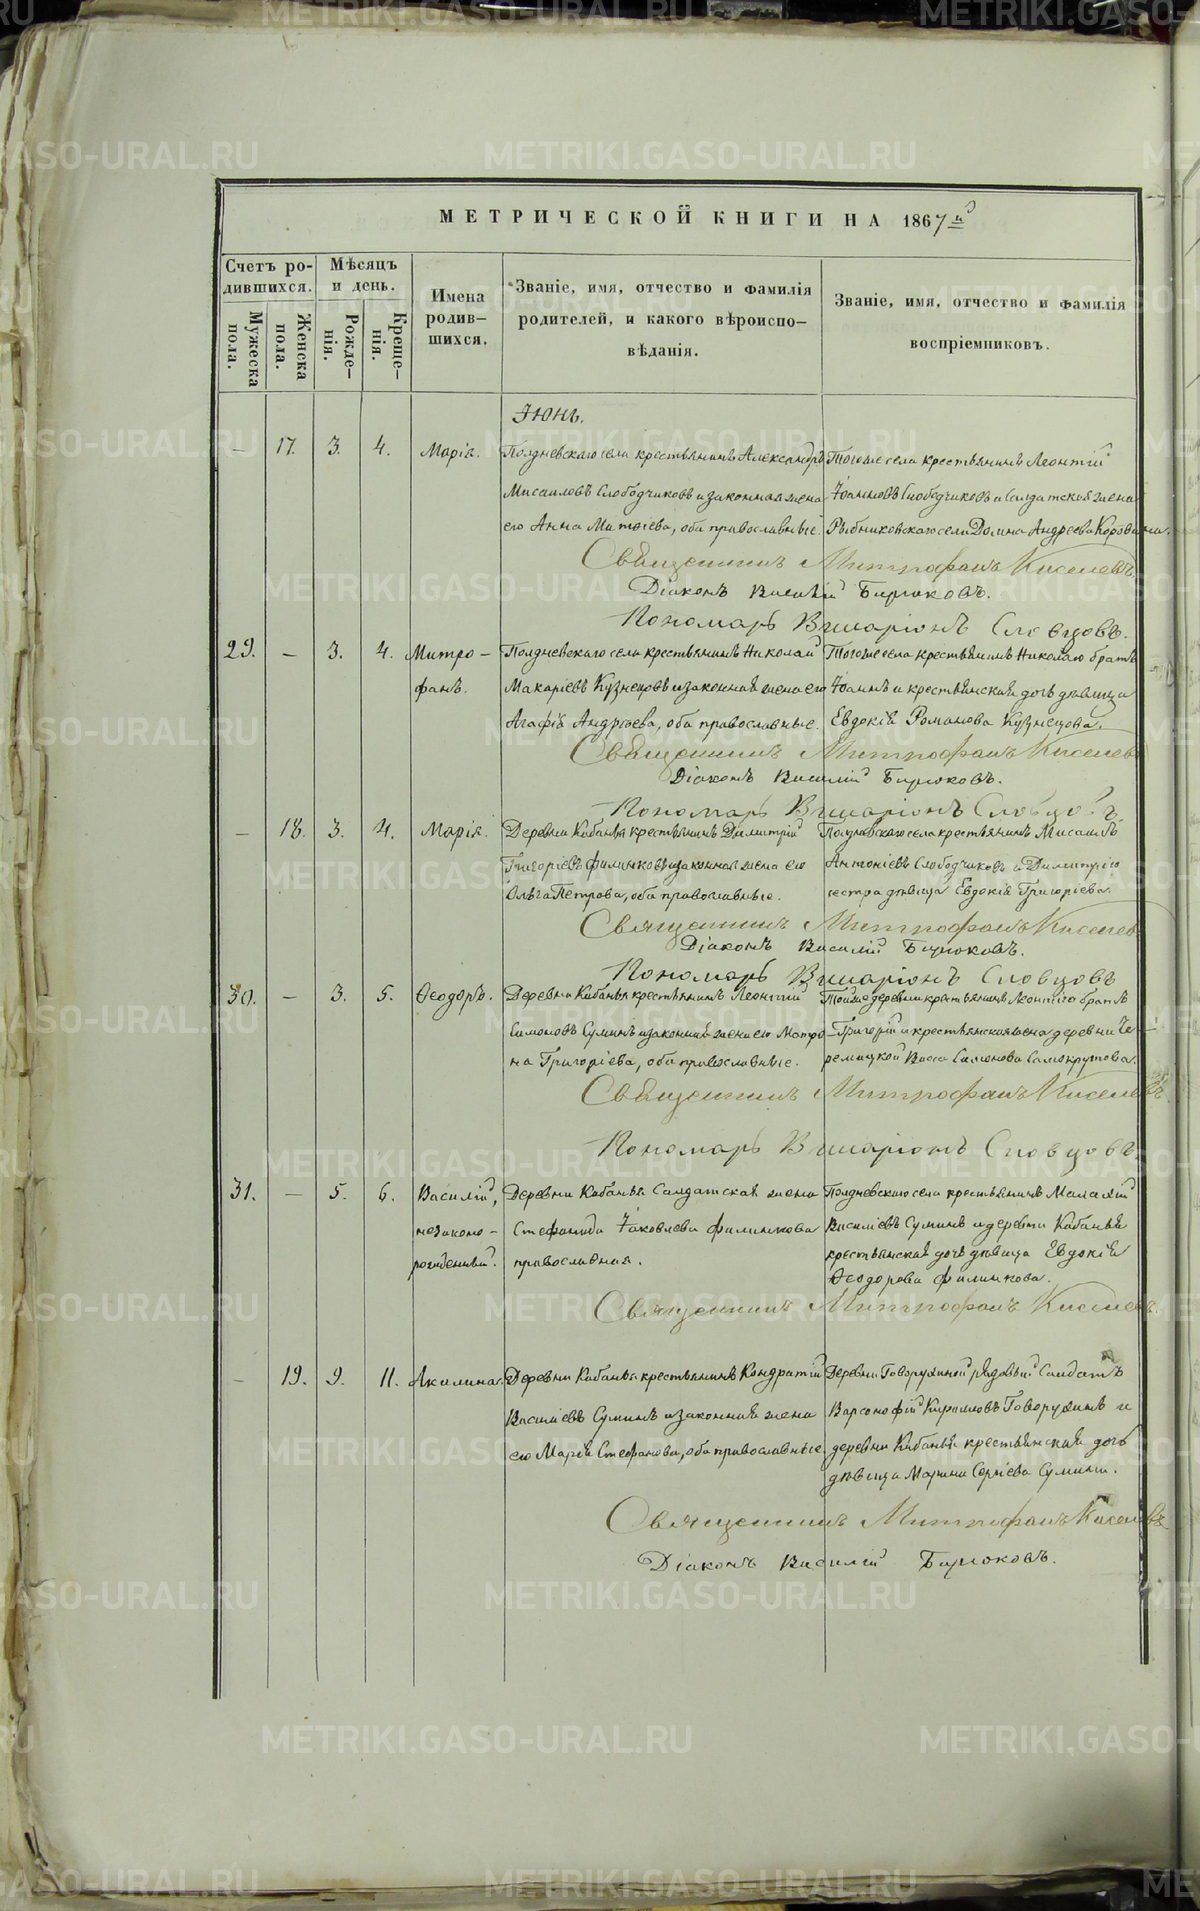 МЕТРИЧЕСКОЙ КНИГИ НА 1867й
Счетъ ро-
дившихся.
Мѣсяцъ
и день.
Мужеска
пола.
Женска
пола.
Рожде-
нія.
Креще-
нія.
Имена
родив-
шихся.
Званіе, имя, отчество и фамилія
родителей, и какого вѣроиспо-
вѣданія.
Званіе, имя, отчество и фамилія
воспріемниковъ.
Іюнь.
— 17. 3. 4. Марія.
Полдневскаго села крестьянинъ Александръ
Мисаиловъ Слободчиковъ и законная жена
его Анна Матѳіева, оба православные.
Тогоже села крестьянинъ Леонтій
Іоанновъ Слободчиковъ и Солдатская жена
Рыбниковскаго села Домна Андреева Коровина.
Священникъ Митрофанъ Киселевъ
Діаконъ Василій Бирюковъ.
Пономарь Виссаріонъ Словцовъ.
29. — 3. 4. Митро-
фанъ.
Полдневскаго села крестьянинъ Николай
Макаріевъ Кузнецовъ и законная жена его
Агафія Андреева, оба православные.
Тогоже села крестьянинъ Николаю братъ
Іоаннъ и крестьянская дочь дѣвица
Евдокія Романова Кузнецова.
Священникъ Митрофанъ Киселевъ
Діаконъ Василій Бирюковъ.
Пономарь Виссаріонъ Словцовъ.
— 18. 3. 4. Марія.
Деревни Кабанья крестьянинъ Димитрій
Григоріевъ Филинковъ и законная жена его
Ольга Петрова, оба православные.
Полдневскаго села крестьянинъ Мисаилъ
Антоніевъ Слободчиковъ и Димитрію
сестра дѣвица Евдокія Григоріева.
Священникъ Митрофанъ Киселевъ
Діаконъ Василій Бирюковъ.
Пономарь Виссаріонъ Словцовъ
30. — 3. 5. Ѳеодоръ.
Деревни Кабанья крестьянинъ Леонтій
Симоновъ Суминъ и законная жена его Матро-
на Григоріева, оба православные.
Тойже деревни крестьянинъ Леонтію братъ
Григорій и крестьянская жена деревни Че-
ремицкой Васса Симонова Самокрутова.
Священникъ Митрофанъ Киселевъ.
Пономарь Виссаріонъ Словцовъ.
31. — 5. 6. Василій,
незаконо-
рожденный.
Деревни Кабанья Солдатская жена
Стефанида Іаковлева Филинкова
православная.
Полдневскаго села крестьянинъ Малахій
Василіевъ Суминъ и деревни Кабанья
крестьянская дочь дѣвица Евдокія
Ѳеодорова Филинкова.
Священникъ Митрофанъ Киселевъ.
— 19. 9. 11. Акилина.
Деревни Кабанья крестьянинъ Кондратій
Василіевъ Суминъ и законная жена
его Марія Стефанова, оба православные.
Деревни Говорухиной рядовый Солдатъ
Варсонофій Кирилловъ Говорухинъ и
деревни Кабанья крестьянская дочь
дѣвица Марина Сергіева Сумина.
Священникъ Митрофанъ Киселевъ
Діаконъ Василій Бирюковъ.
METRIKI.GASO-URAL.RU